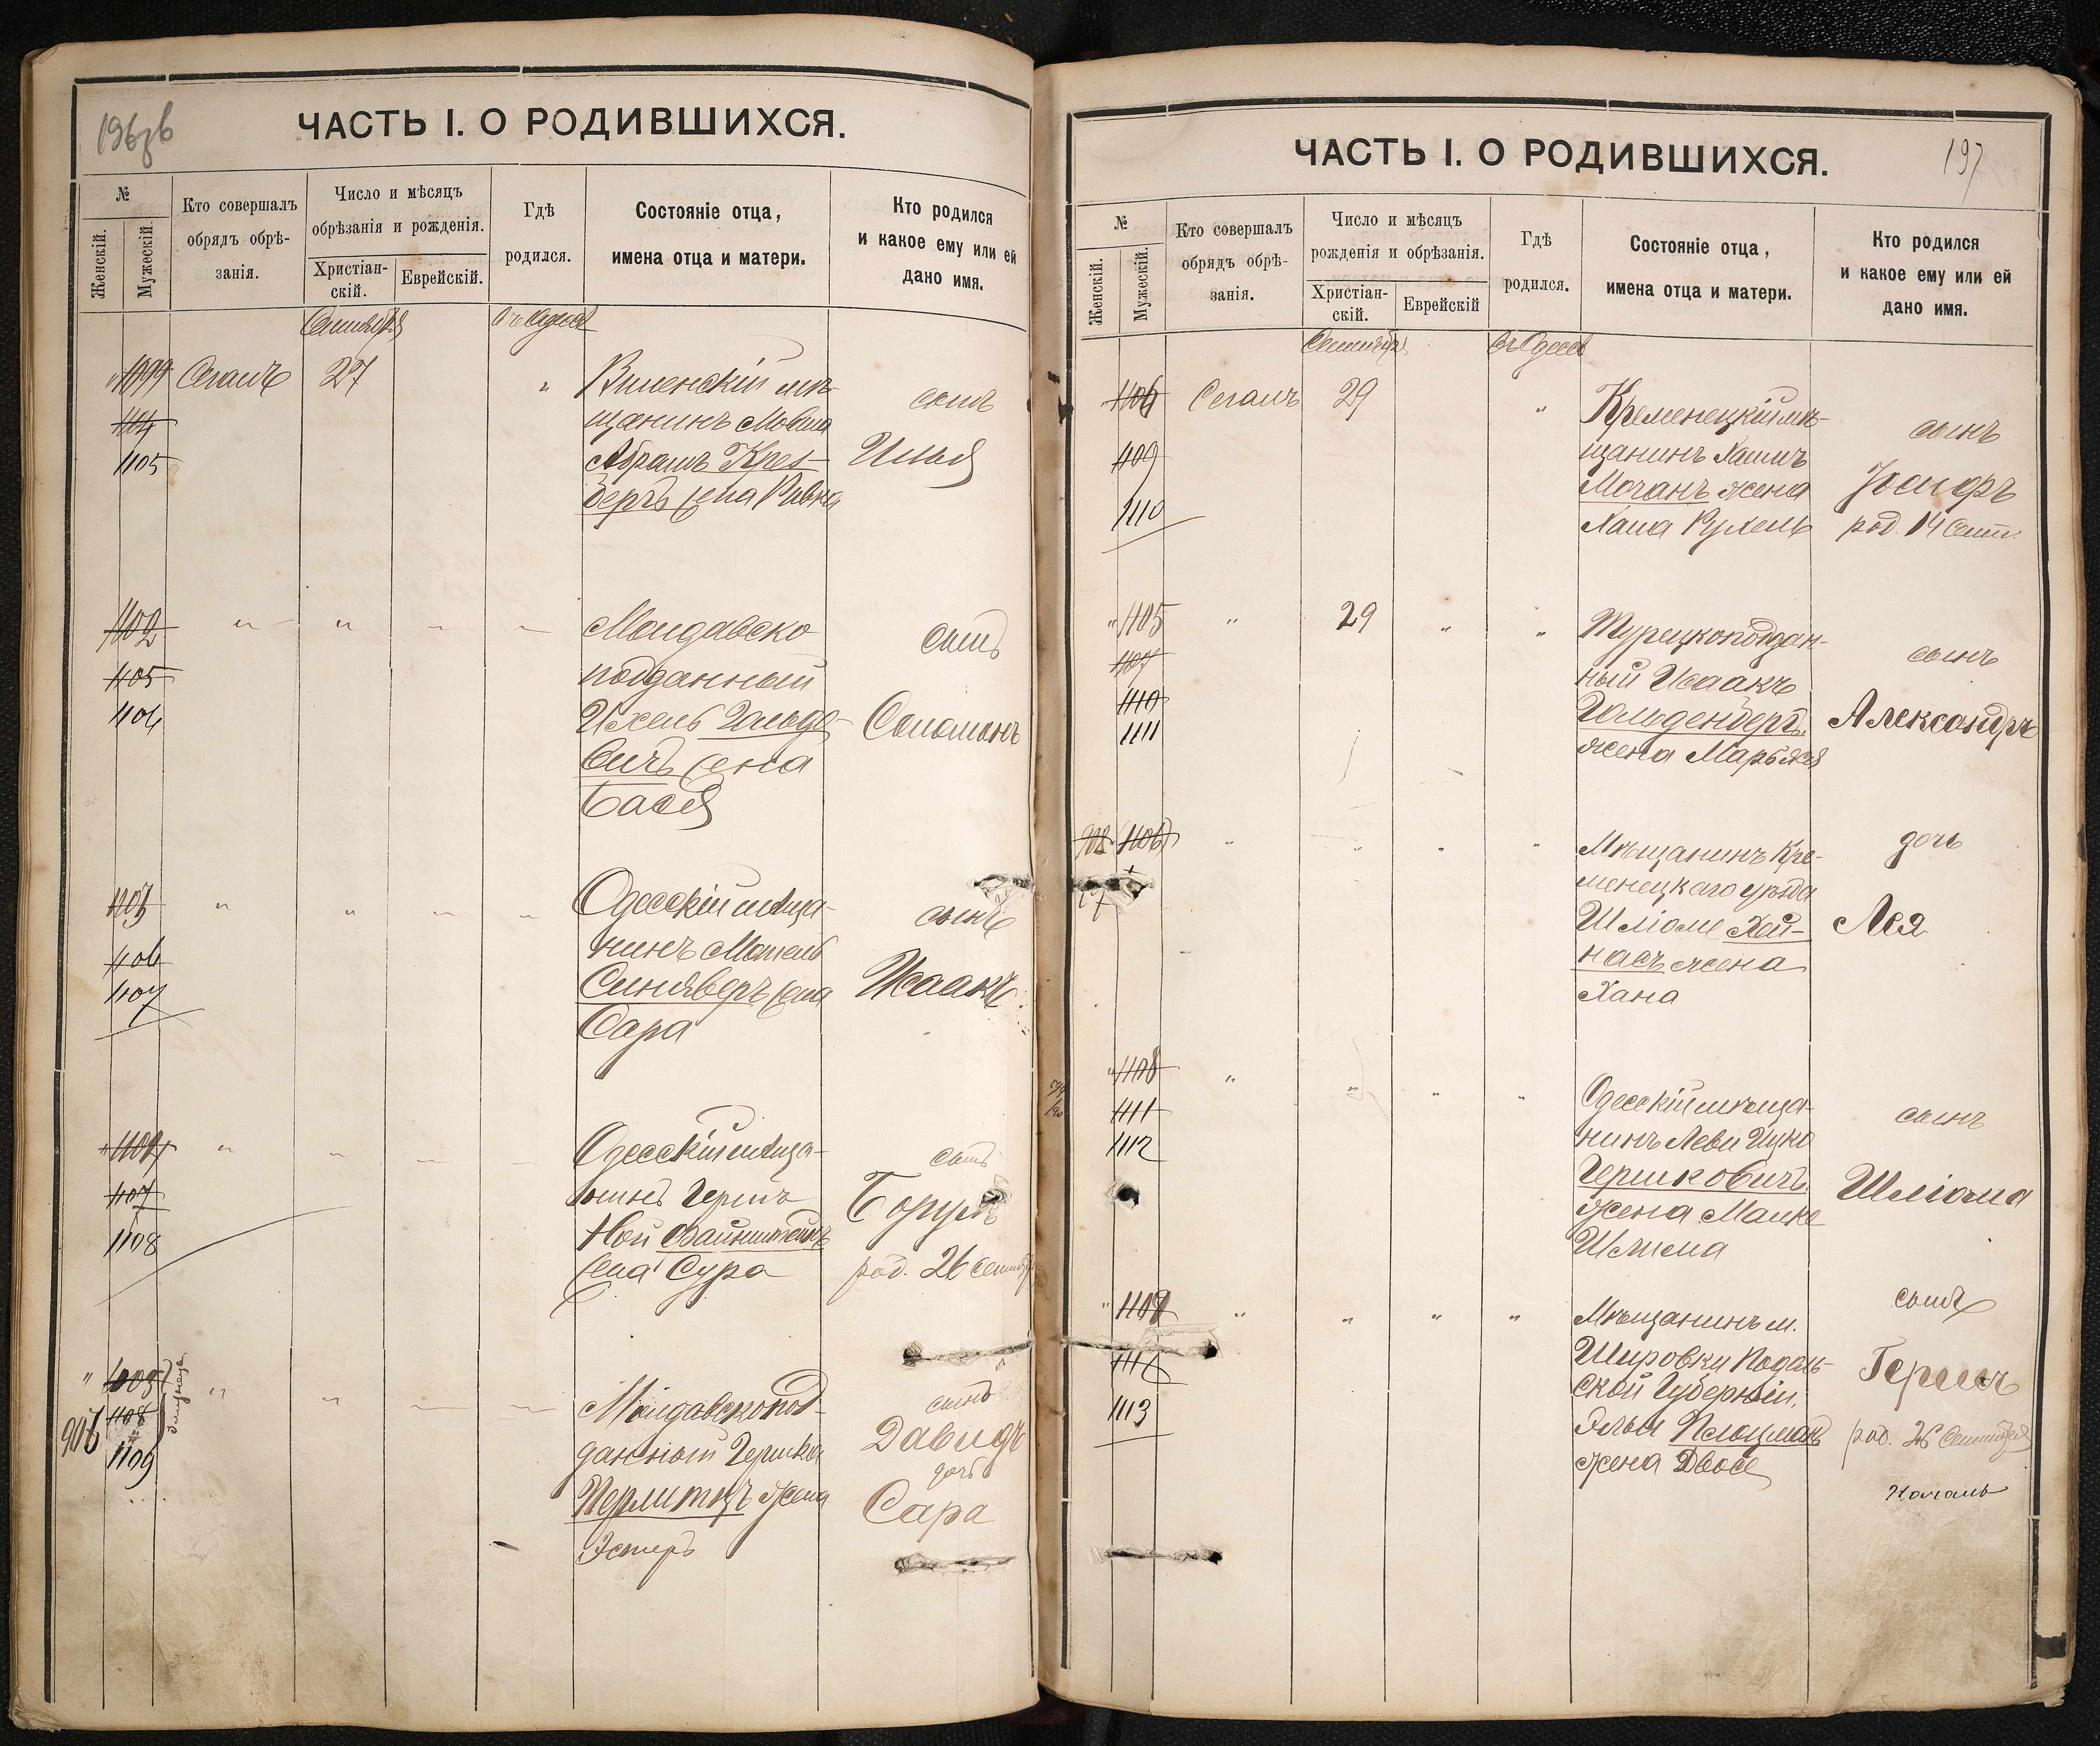 196об
ЧАСТЬ I. О РОДИВШИХСЯ.
№
Женскій.
Мужескій.
Кто совершалъ
обрядъ обрѣ-
занія.
Число и мѣсяцъ
обрѣзанія и рожденія.
Христіан-
скій.
Еврейскій.
Гдѣ
родился.
Состояніе отца,
имена отца и матери.
Кто родился
и какое ему или ей
дано имя.
Сентября
въ Одессѣ
1099 Сегалъ 27 " Виленскій мѣ-
щанинъ Мовша
сынъ
1104
1105
Абрамъ Крез-
бергъ жена Ривка
Илья
1102
1105
1106
Молдавско
подданный
Ихель Гольдо-
вичъ жена
Бася
сынъ
Соломонъ
1103
1106
1107
Одесскій мѣща-
нинъ Мотель
Синяверъ жена
Сара
сынъ
Исаакъ
1104
1107
1108
Одесскій мѣща-
нинъ Гершъ
Ной Файнштейнъ
жена Сура
сынъ
Борухъ
род. 26 Сентяб
1108
1109
906
близнеца
Молдавскопод-
данный Гершка
Перлитъ жена
Эстеръ
сынъ
Давидъ
дочь
Сара
ЧАСТЬ I. О РОДИВШИХСЯ.
197
№
Женскій.
Мужескій.
Кто совершалъ
обрядъ обрѣ-
занія.
Число и мѣсяцъ
рожденія и обрѣзанія.
Христіан-
скій.
Еврейскій
Гдѣ
родился.
Состояніе отца,
имена отца и матери.
Кто родился
и какое ему или ей
дано имя.
Сентября
въ Одессѣ
Сегалъ 29 " Кременецкій мѣ-
1109
1110
щанинъ Хаимъ
Моганъ жена
Хана Рухель
сынъ
Іосифъ
род. 14 Сент.
1105 " 29 " " Турецкоподдан-
1107
1110
1111
ный Исаакъ
Гольденбергъ
жена Марьяся
сынъ
Александръ
908 1106
Мѣщанинъ Кре-
менецкаго уѣзда
Шліоме Хей-
насъ жена
Хана
дочь
Лея
1108
1111
1112
Одесскій мѣща-
нинъ Леви Ицко
Гершковичъ
жена Малке
Шлима
сынъ
Шліома
1109
1112
1113
Мѣщанинъ м.
Шировки Подоль-
ской Губерніи,
Эльи
жена Двося
сынъ
Гершъ
род. 26 Сентября